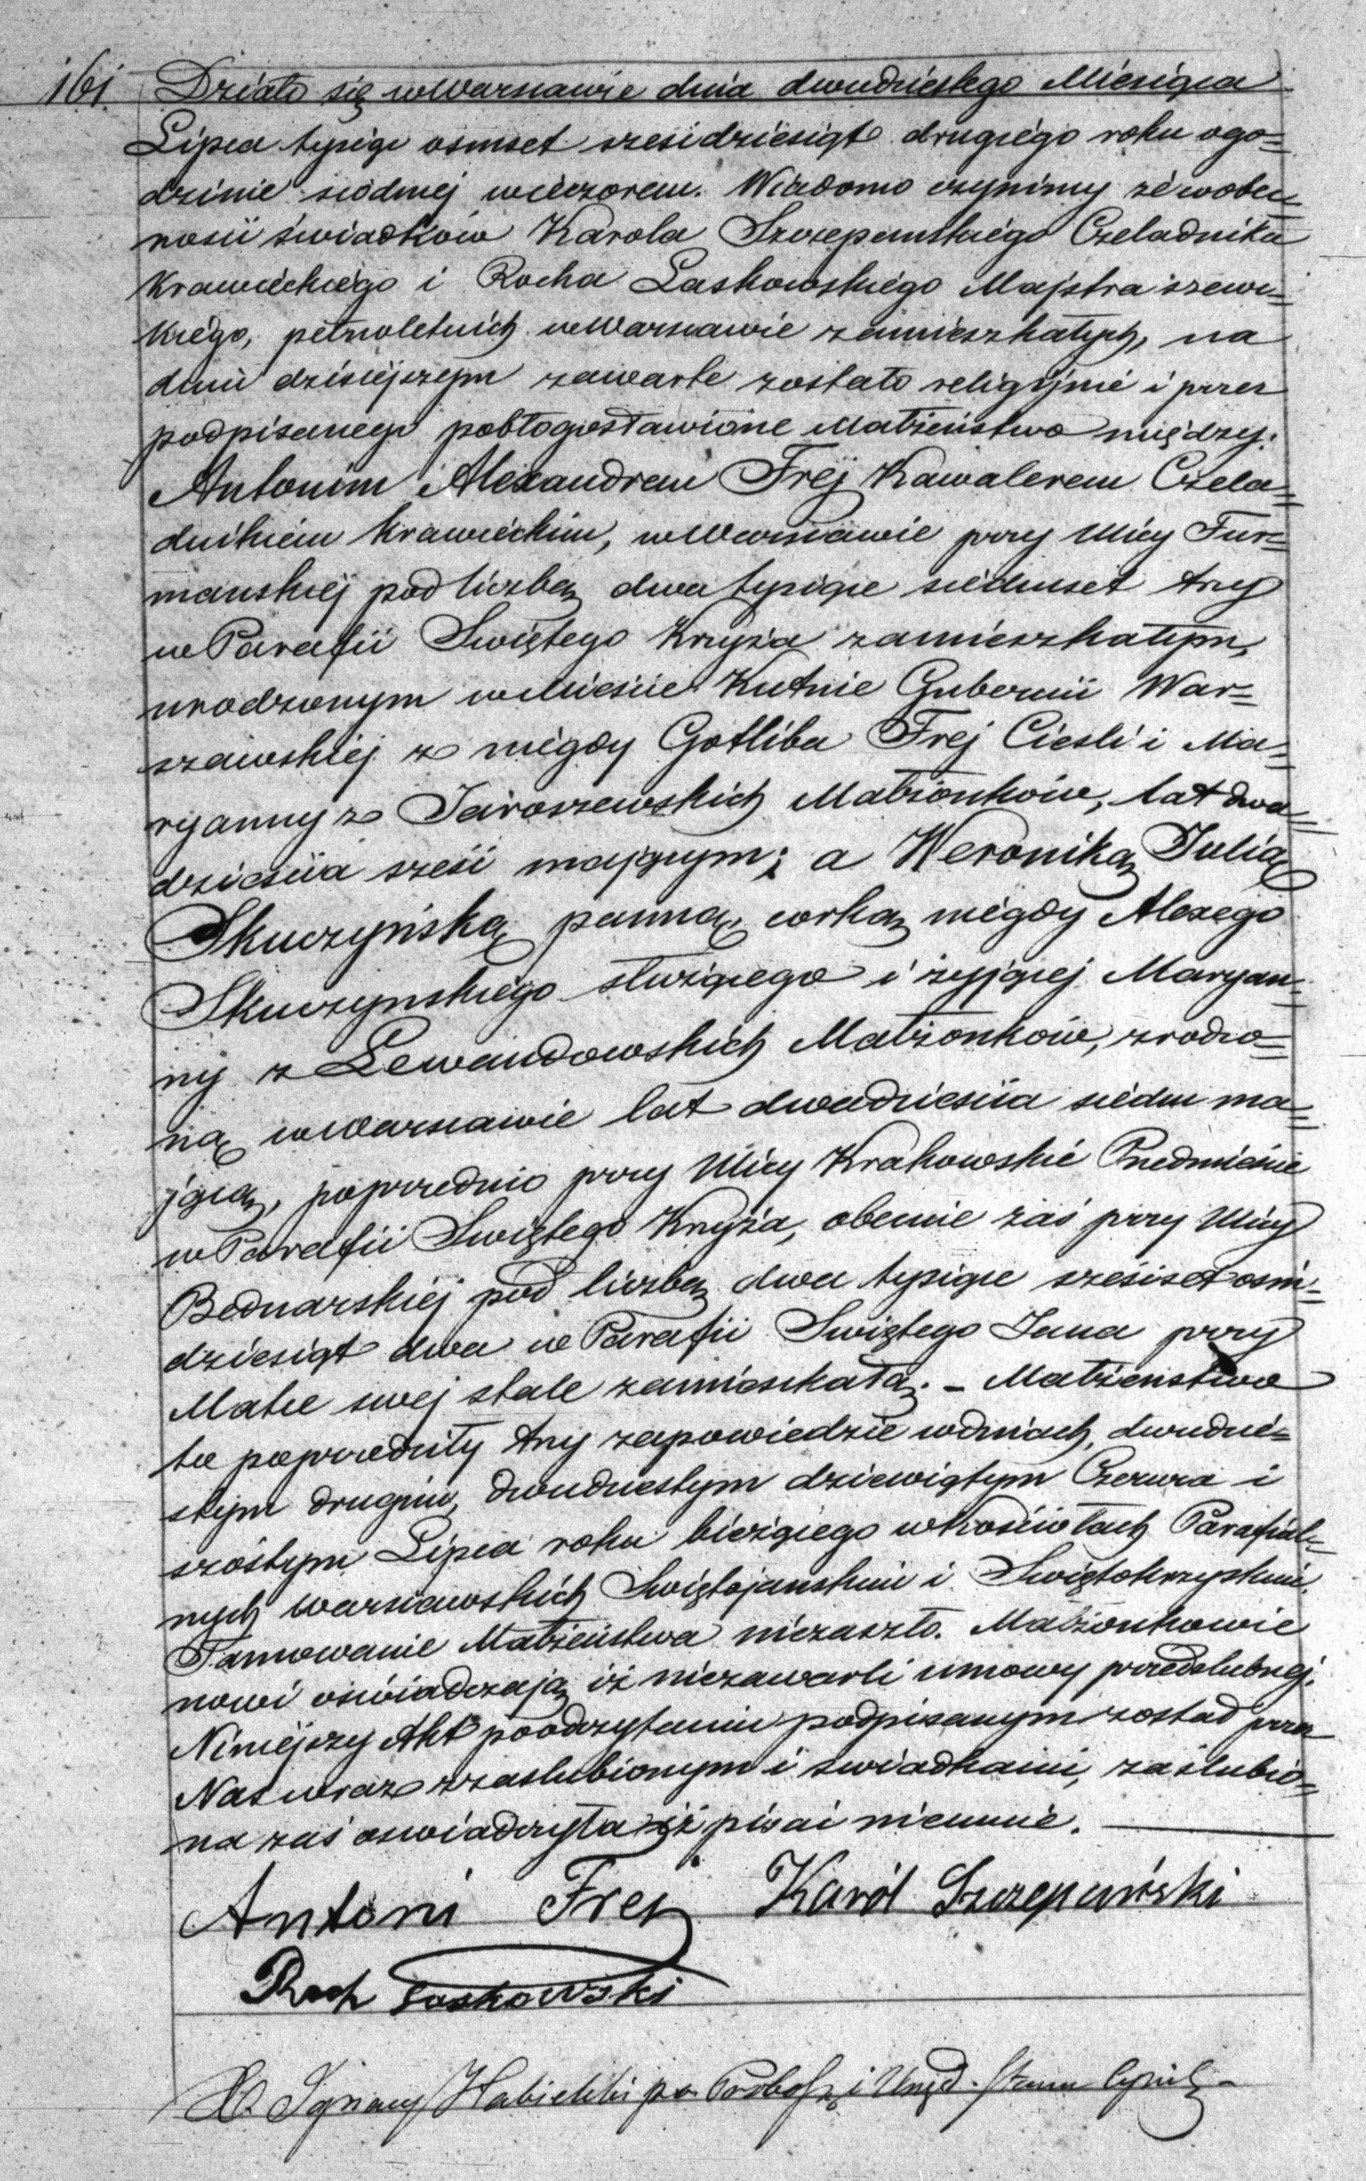 161. Działo się w Warszawie dnia dwudziestego Miesiąca
Lipca tysiąc osmset sześćdziesiąt drugiego roku o go=
dzinie siódmej wieczorem. Wiadomo czynimy że w obec=
ności świadków Karola Szczepanskiego Czeladnika
Krawieckiego i Rocha Laskowskiego Majstra szews=
kiego, pełnoletnich w Warszawie zamieszkałych, na
dniu dzisiejszym zawarte zostało religijnie i przez
podpisanego pobłogosławione Małżeństwo między.
Antonim Alexandrem Frej Kawalerem Czela=
dnikiem krawieckim, w Warszawie przy Ulicy Fur=
manskiej pod liczbą dwa tysiące siedmset trzy
w Parafii Swiętego Krzyża zamieszkałym,
urodzonym w Mieście Kutnie Gubernii War=
szawskiej z niegdy Gotliba Frej Cieśli i Ma=
ryanny z Jaroszewskich Małżonków, lat dwa=
dzieścia sześć mającym; a Weroniką Julią
Skuczyńską panną, corką niegdy Alexego
Skuczynskiego służącego i żyjącej Maryan=
ny z Lewandowskich Małżonków, zrodzo=
ną w Warszawie lat dwadzieścia siedm ma=
jącą, poprzednio przy Ulicy Krakowskie Przedmieście
w Parafii Swiętego Krzyża, obecnie zaś przy Ulicy
Bednarskiej pod liczbą dwa tysiące sześćset osm=
dziesiąt dwa w Parafii Swiętego Jana przy
Matce swej stale zamieszkałą. – Małżeństwo
to poprzedziły trzy zapowiedzie w dniach, dwudzie=
stym drugim, dwudziestym dziewiątym Czerwca i
szóstym Lipca roku bieżącego w kościołach Parafial=
nych warszawskich Swiętojanskim i Swiętokrzyskim.
Tamowanie Małżeństwa niezaszło. Małżonkowie
nowi oświadczają iż niezawarli umowy przedślubnej.
Niniejszy Akt po odczytaniu podpisanym został przez
Nas wraz z zaslubionym i swiadkami, zaślubio=
na zaś oswiadczyła iż pisać nieumie.
Antoni Frej Karól Szczepański
Roch Laskowski
X. Ignacy p.o. Probosz. i Urzęd. Stanu Cywil.